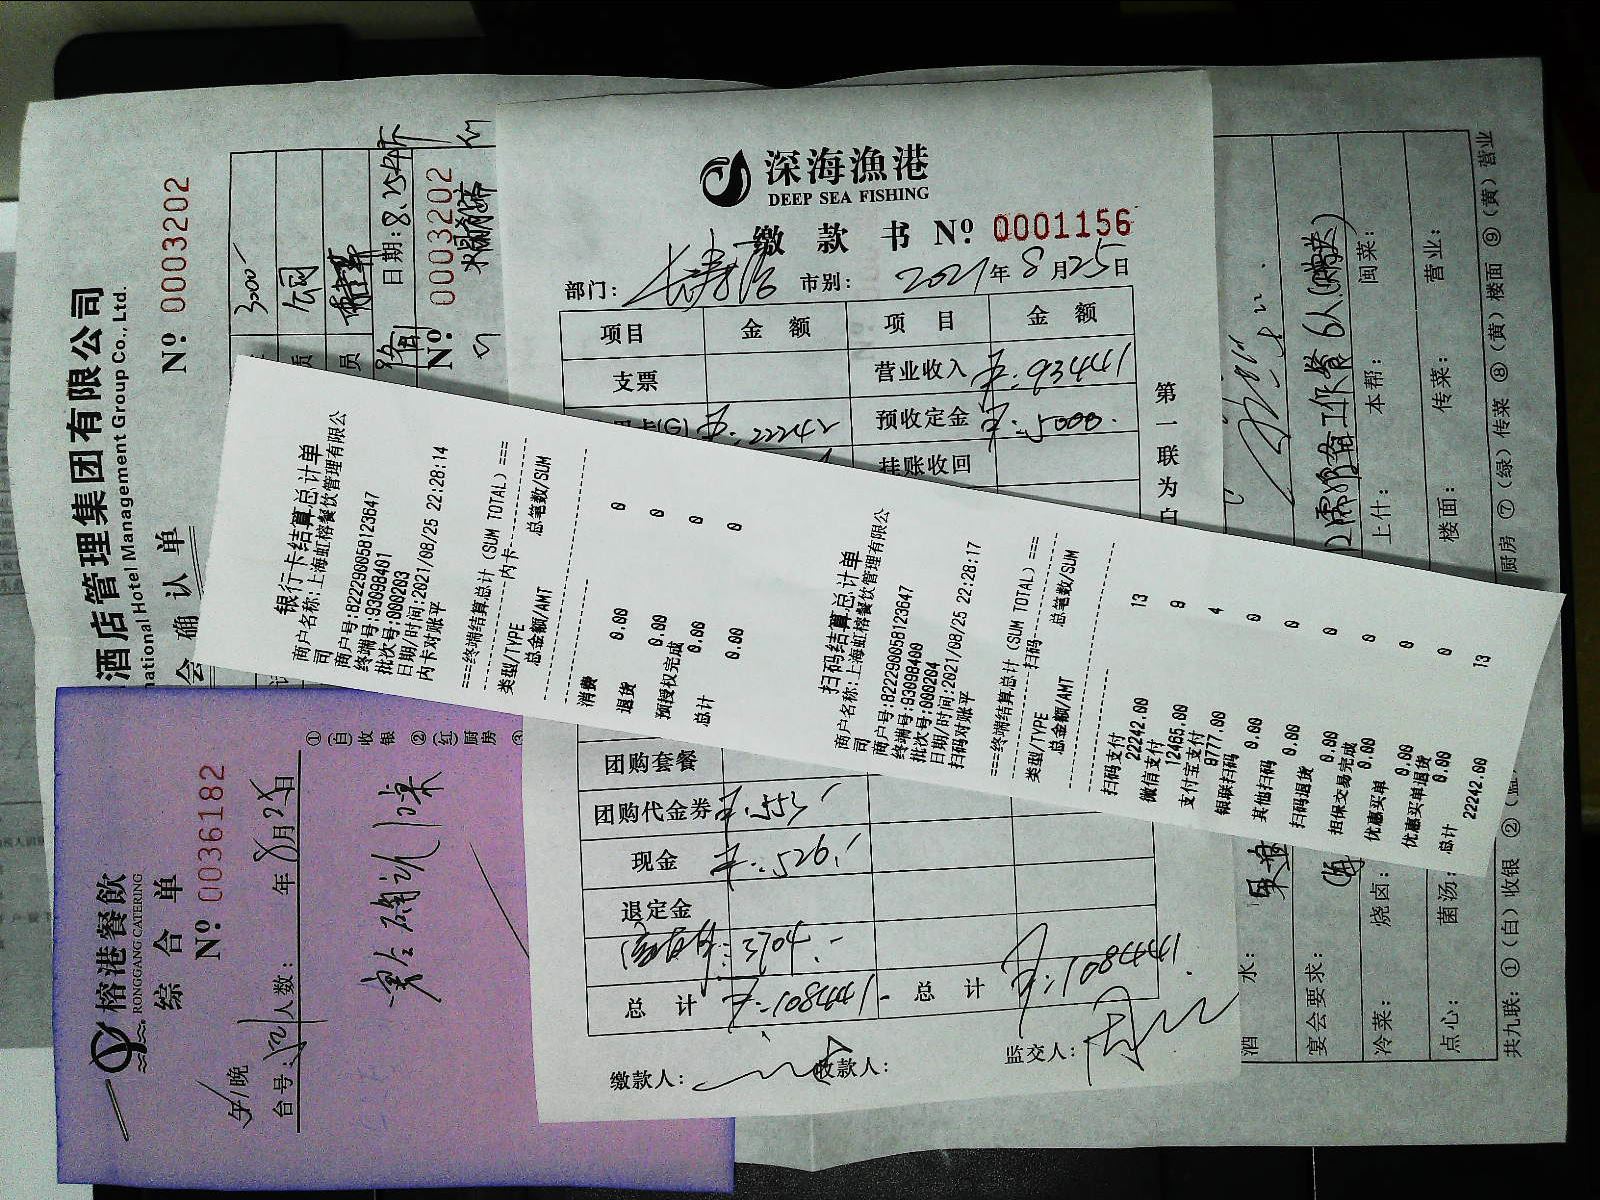 深海漁港
DEEP SEA FISHING
缴 款 书 Nº: 0001156
部门: 长寿路 市别: 2021年8月25日
项目 金 额 项 目 金 额
支票 营业收入
¥:22242 预收定金 ¥:5000.
挂账收回
团购套餐
团购代金券 ¥:553
现金 ¥:526.
退定金
3704.-
总 计 总 计
缴款人: 收款人: 监交人:
第一联为白
银行卡结算总计单
商户名称:上海虹榕餐饮管理有限公
司
商户号:822290058123647
终端号:93098401
批次号:000203
日期/时间:2021/08/25 22:28:14
内卡对账平
===终端结算总计 (SUM TOTAL) ===
内卡
类型/TYPE 总笔数/SUM
总金额/AMT
消费 0
0.00
退货 0
0.00
预授权完成 0
0.00
总计 0
0.00
扫码结算总计单
商户名称:上海虹榕餐饮管理有限公
司
商户号:822290058123647
终端号:93098400
批次号:000204
日期/时间:2021/08/25 22:28:17
扫码对账平
===终端结算总计 (SUM TOTAL) ===
扫码
类型/TYPE 总笔数/SUM
总金额/AMT
扫码支付 13
22242.00
微信支付 9
12465.00
支付宝支付 4
9777.00
银联扫码 0
0.00
其他扫码 0
0.00
扫码退货 0
0.00
担保交易完成 0
0.00
优惠买单 0
0.00
优惠买单退货 0
0.00
总计 13
22242.00
酒店管理集团有限公司
national Hotel Management Group Co., Ltd.
会 确 认 单 Nº 0003202
3000
日期: 8.25
Nº: 0003202
榕港餐飲
RONGGANG CATERING
综 合 单
Nº: 0036182
午/晚
台号: 人数: 年 8月25日
①(白)收银 ②(红)厨房 ③
酒 水:
宴会要求:
冷菜: 烧卤: 上什: 本帮: 闽菜:
点心: 菌汤: 楼面: 传菜: 营业:
共九联: ①(白)收银 ② 厨房 ⑦(绿)传菜 ⑧(黄)楼面 ⑨(黄)营业